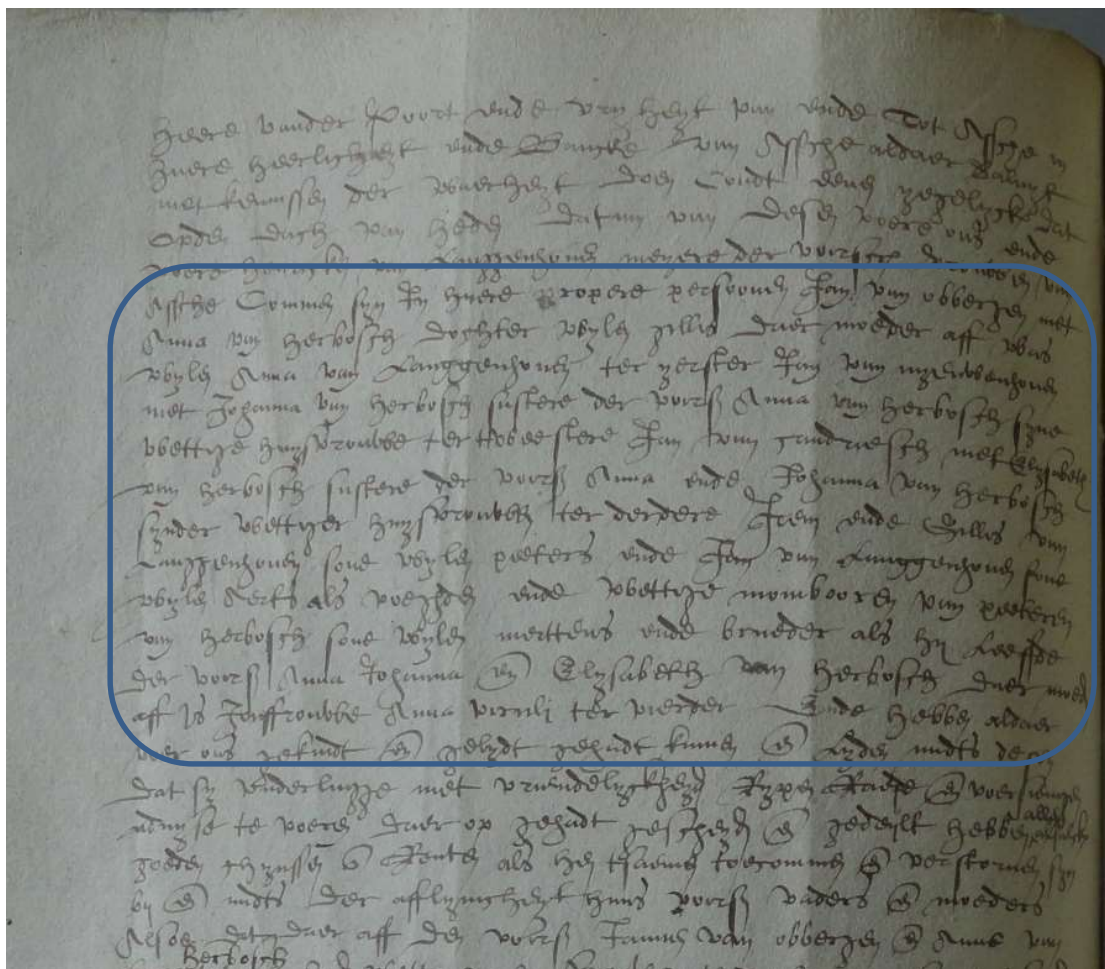 heere vander Poort ende vryheyt van ende Tot Assche in
huere heerlicheyt ende Bancke van Assche aldaer
met kenisse der waerheyt doen Condt eenen yegelycke dat
opden dach van heden datum van desen voere ons ende
voere van Langgenhoven meyere der voirscr vrouwen van
Assche Commen syn In huere propere persoonen Jan van obberghen met
Anna van herbosch dochter wylen gillis daer moeder aff was
wylen Anna van Langgenhoven ter yerster Jan van nyeuwenhoven
met Johanna van herbosch sustere der voirs Anna van herbosch syne
wettige huysvrouwe ter tweestere Jan van met Elysabeth
van herbosch sustere der voirs Anna ende Johanna van herbosch
synder wettiger huysvrouwen ter derdere Item ende Gillis van
Langgenhoven sone wylen peeters ende Jan van Langgenhoven sone
wylen Aerts als voeghden ende wettige mombooren van peeteren
van herbosch sone wylen merttens ende brueder als hy Leeffde
der voirs Anna Johanna en Elysabeth van herbosch daer moed
aff is Jouffrouwe Anna ter vierder Ende hebben aldaer
voer ons gekindt en gelydt gehadt kinnen en Lyden midts desen
dat sy onderlinge met vriendelyckheyd Rypen Raede en voersienigen
advyse te voeren daer op gehadt gescheyden en gedeylt hebben allen
goeden chynssen en Renten als hen tsamen toecommen en verstorven syn
by en midts der afflyvicheyt huns voirs vaders en moeders
Alsoe dat daer aff den voirs Jannen van obbergen en Anne van
herbosch